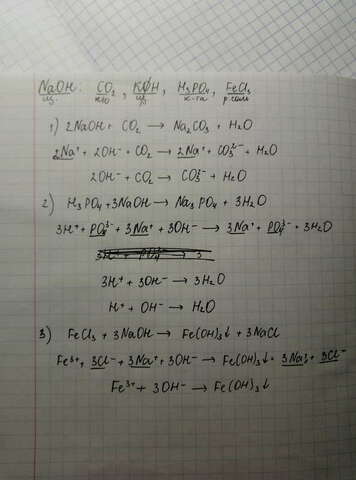 NaOH: CO₂, KOH, H₃PO₄, FeCl₃
щ. к.о щ. к-та р.соль
1) 2NaOH + CO₂ → Na₂CO₃ + H₂O
2Na⁺ + 2OH⁻ + CO₂ → 2Na⁺ + CO₃²⁻ + H₂O
2OH⁻ + CO₂ → CO₃²⁻ + H₂O
2) H₃PO₄ + 3NaOH → Na₃PO₄ + 3H₂O
3H⁺ + PO₄³⁻ + 3Na⁺ + 3OH⁻ → 3Na⁺ + PO₄³⁻ + 3H₂O
3H⁺ + 3OH⁻ → 3H₂O
H⁺ + OH⁻ → H₂O
3) FeCl₃ + 3NaOH → Fe(OH)₃↓ + 3NaCl
Fe³⁺ + 3Cl⁻ + 3Na⁺ + 3OH⁻ → Fe(OH)₃↓ + 3Na⁺ + 3Cl⁻
Fe³⁺ + 3OH⁻ → Fe(OH)₃↓